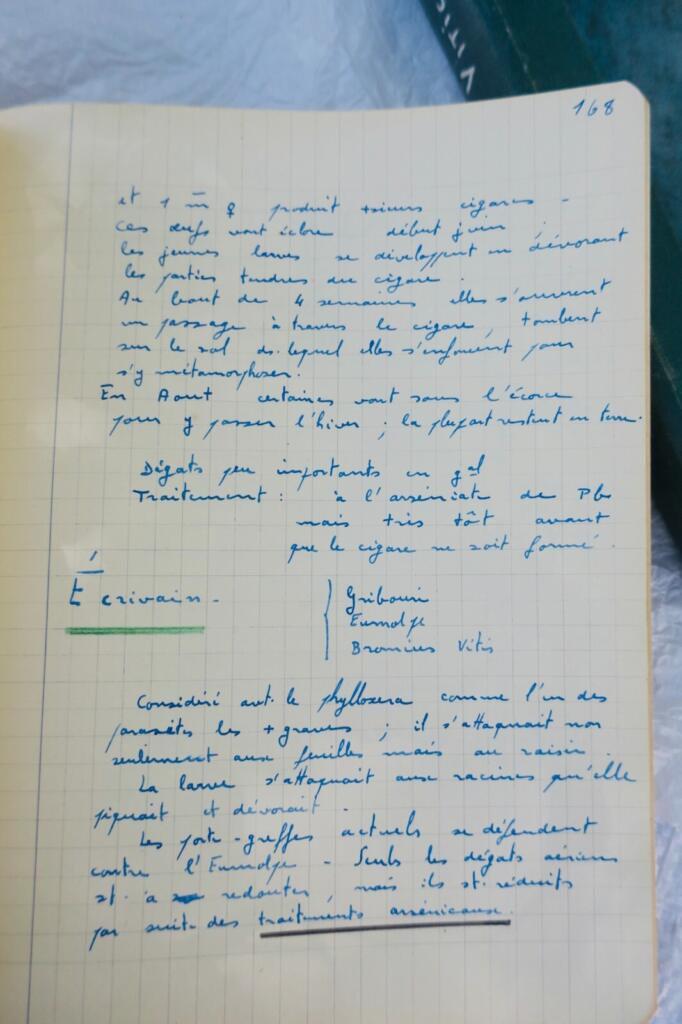 VITIS
168
et 1 m̅ ♀ produit +sieurs cigares -
ces œufs vont éclore début juin ;
les jeunes larves se développent en dévorant
les parties tendres du cigare.
Au bout de 4 semaines elles s'ouvrent
un passage à travers le cigare, tombent
sur le sol ds. lequel elles s'enfoncent pour
s'y métamorphoser.
En Aout certaines vont sous l'écorce
pour y passer l'hiver ; la plupart restent en terre.
Dégats peu importants en gal
Traitement : à l'arséniate de Pb
mais très tôt avant
que le cigare ne soit formé.
Ecrivain -
Gribouri
Eumolpe
Bromius Vitis
Considéré avt. le phylloxera comme l'un des
parasites les + graves ; il s'attaquait non
seulement aux feuilles mais au raisin.
La larve s'attaquait aux racines qu'elle
piquait et dévorait.
Les porte-greffes actuels se défendent
contre l'Eumolpe - Seuls les dégats aériens
st. à redouter, mais ils st. réduits
par suite des traitements arsénicaux.